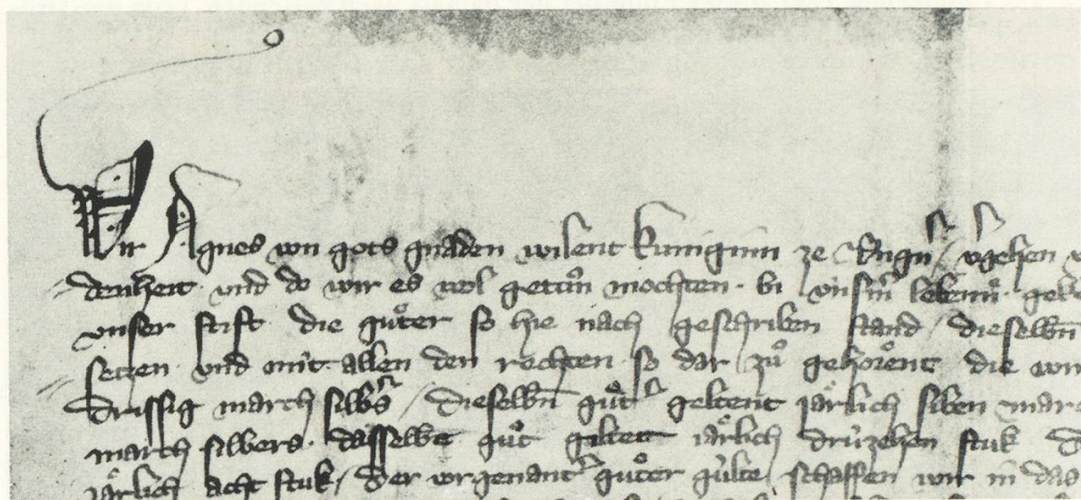 Wir Agnes von gots gnaden wilent kuniginn ze Ungern v'gehen
denheit · vnd do wir es wol getůn mochten · bi vnserm lebenn ·
vnser stift die gůter so hie nach geschriben stand / dieselbn
setzen vnd mit allen den rechten so dar zů gehoͤrent die wir
drissig march silb's / dieselbn gůt' geltent jaͤrlich siben marc
march silbers · dasselbe gůt giltet jaͤrlich drúzehen stuk
jaͤrlich acht stuk / der vorgenant' gůter gúlte / schaffen wir in das